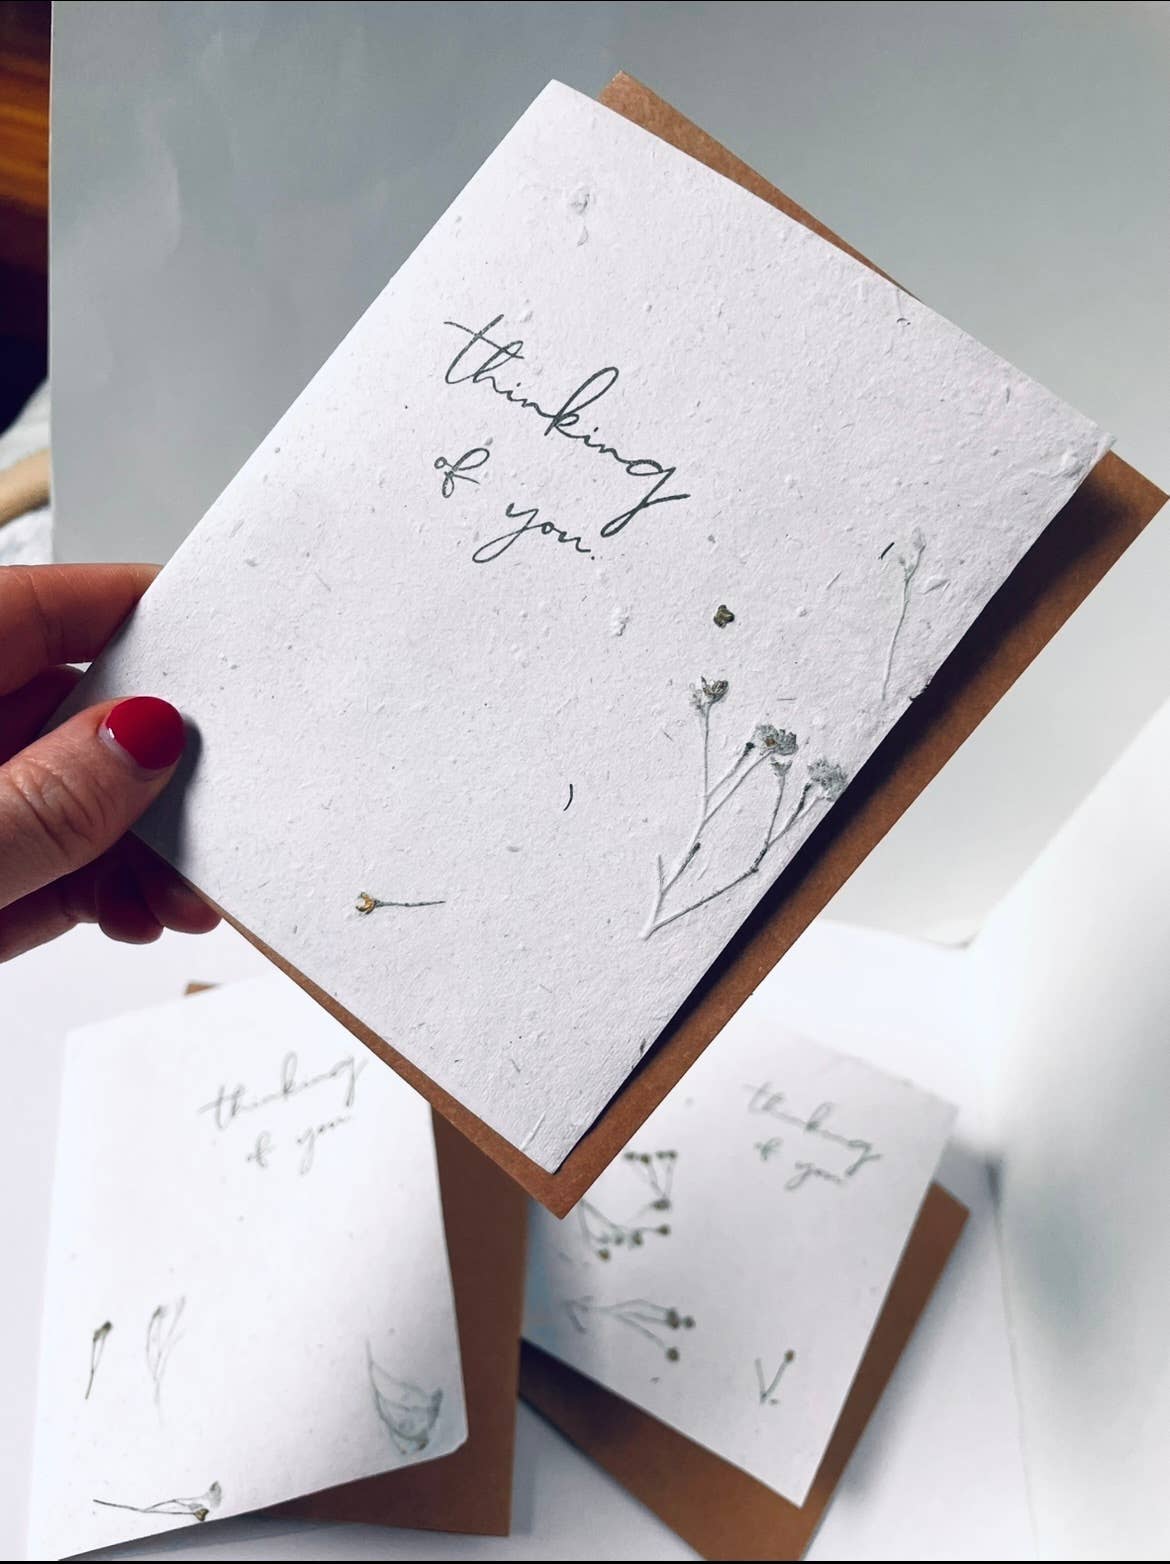 thinking
of you.
thinking
of you
thinking
of you